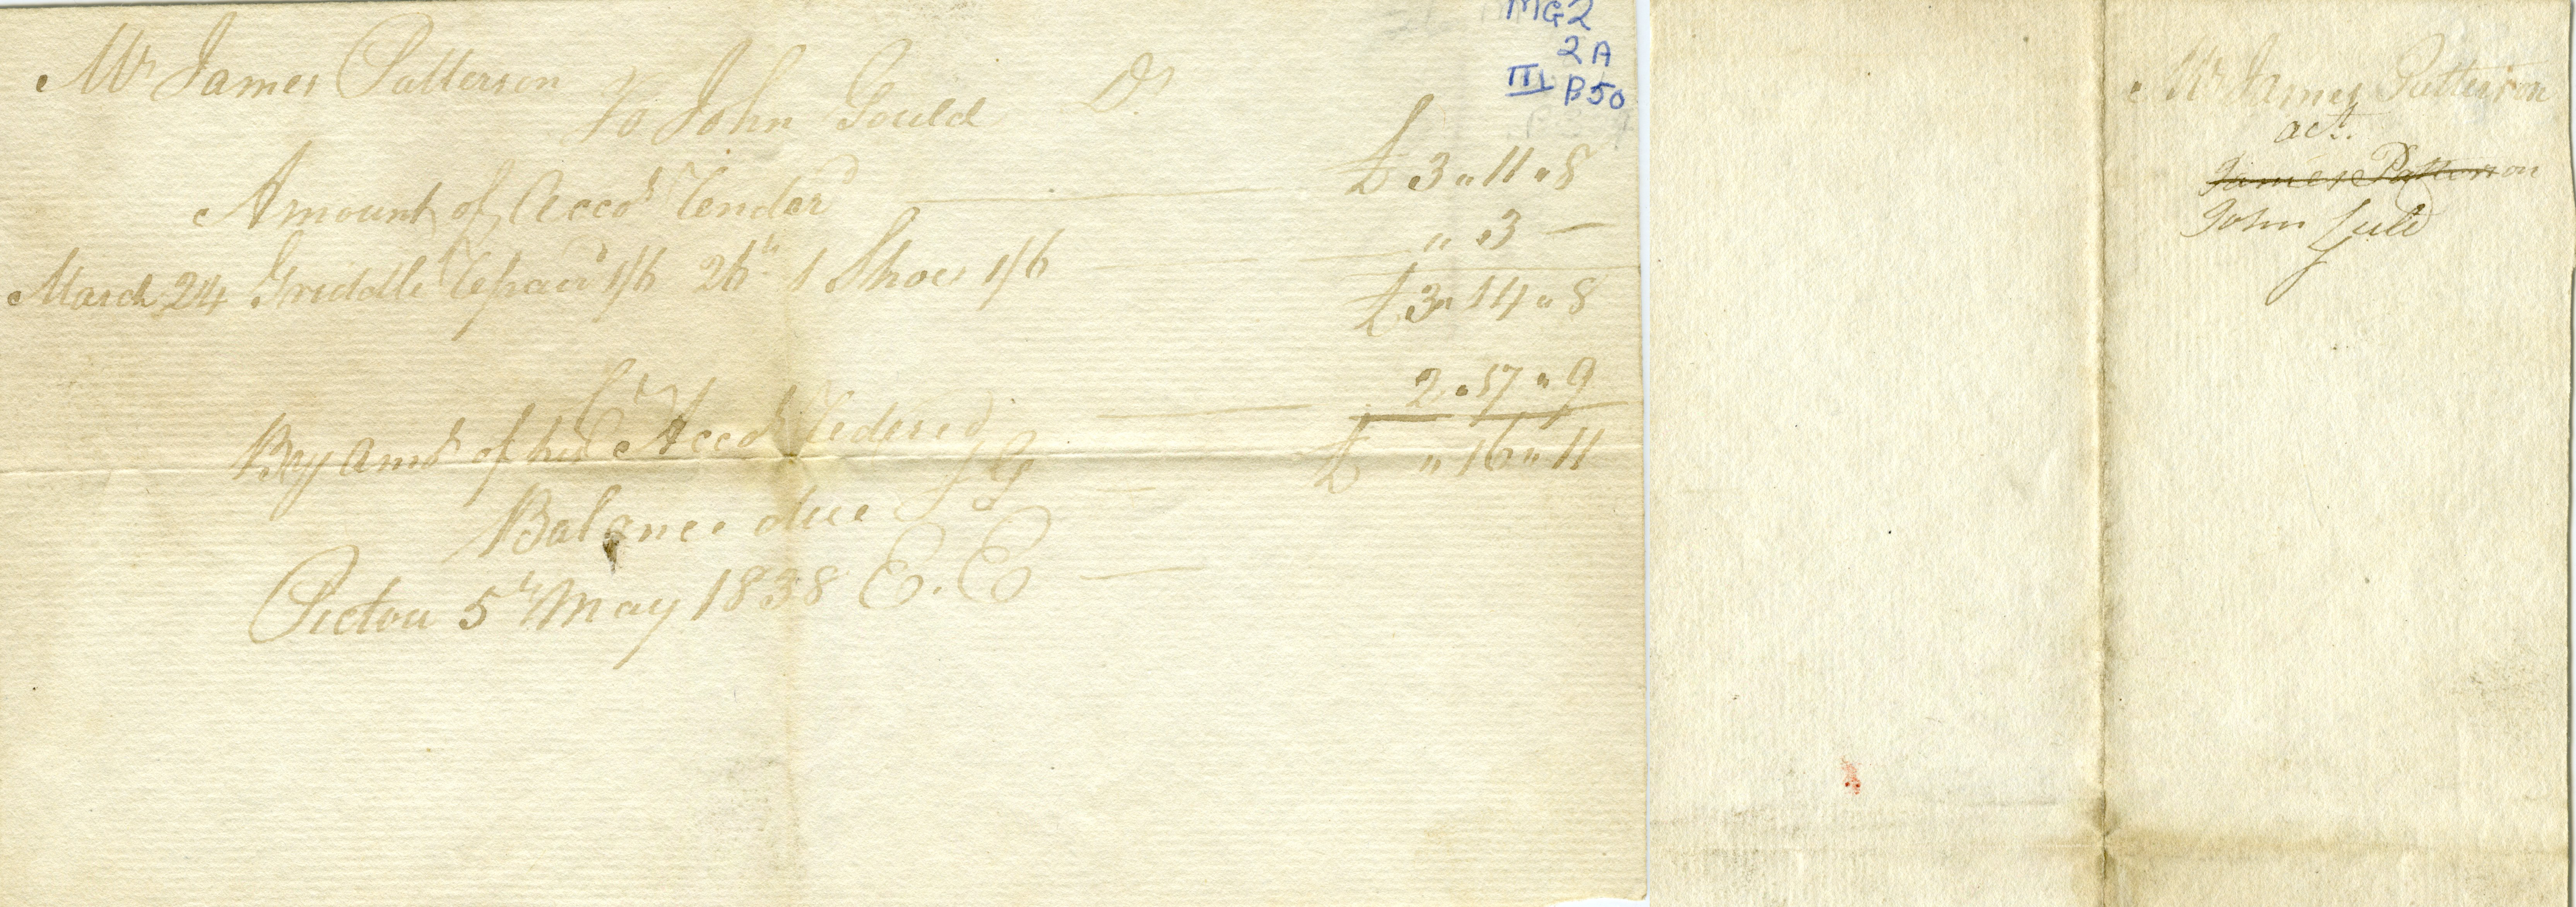 MG2
2A
III B50
Mr James Patterson
To John Gould Dr
Amount of Accot Renderd £ 3 " 11 " 8
March 24 Griddle Repaird 1/6 26th 1 Shoe 1/6 " 3 —
£ 3 " 14 " 8
Cr
By Amt of his Accot Redered 2 " 17 " 9
Balance due JG £ " 16 " 11
Pictou 5th May 1838 E. E
Mr James Patterson
act.
James Patterson
John Guld